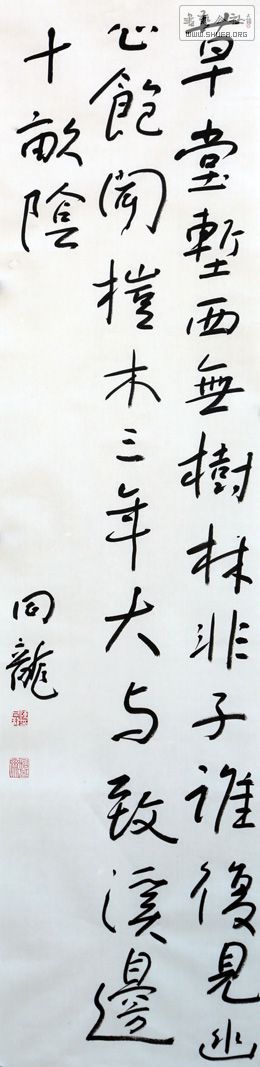 草堂塹西無樹林非子誰復見幽
心飽聞榿木三年大与致溪邊
十畝陰
同龍
WWW.SHUFA.ORG